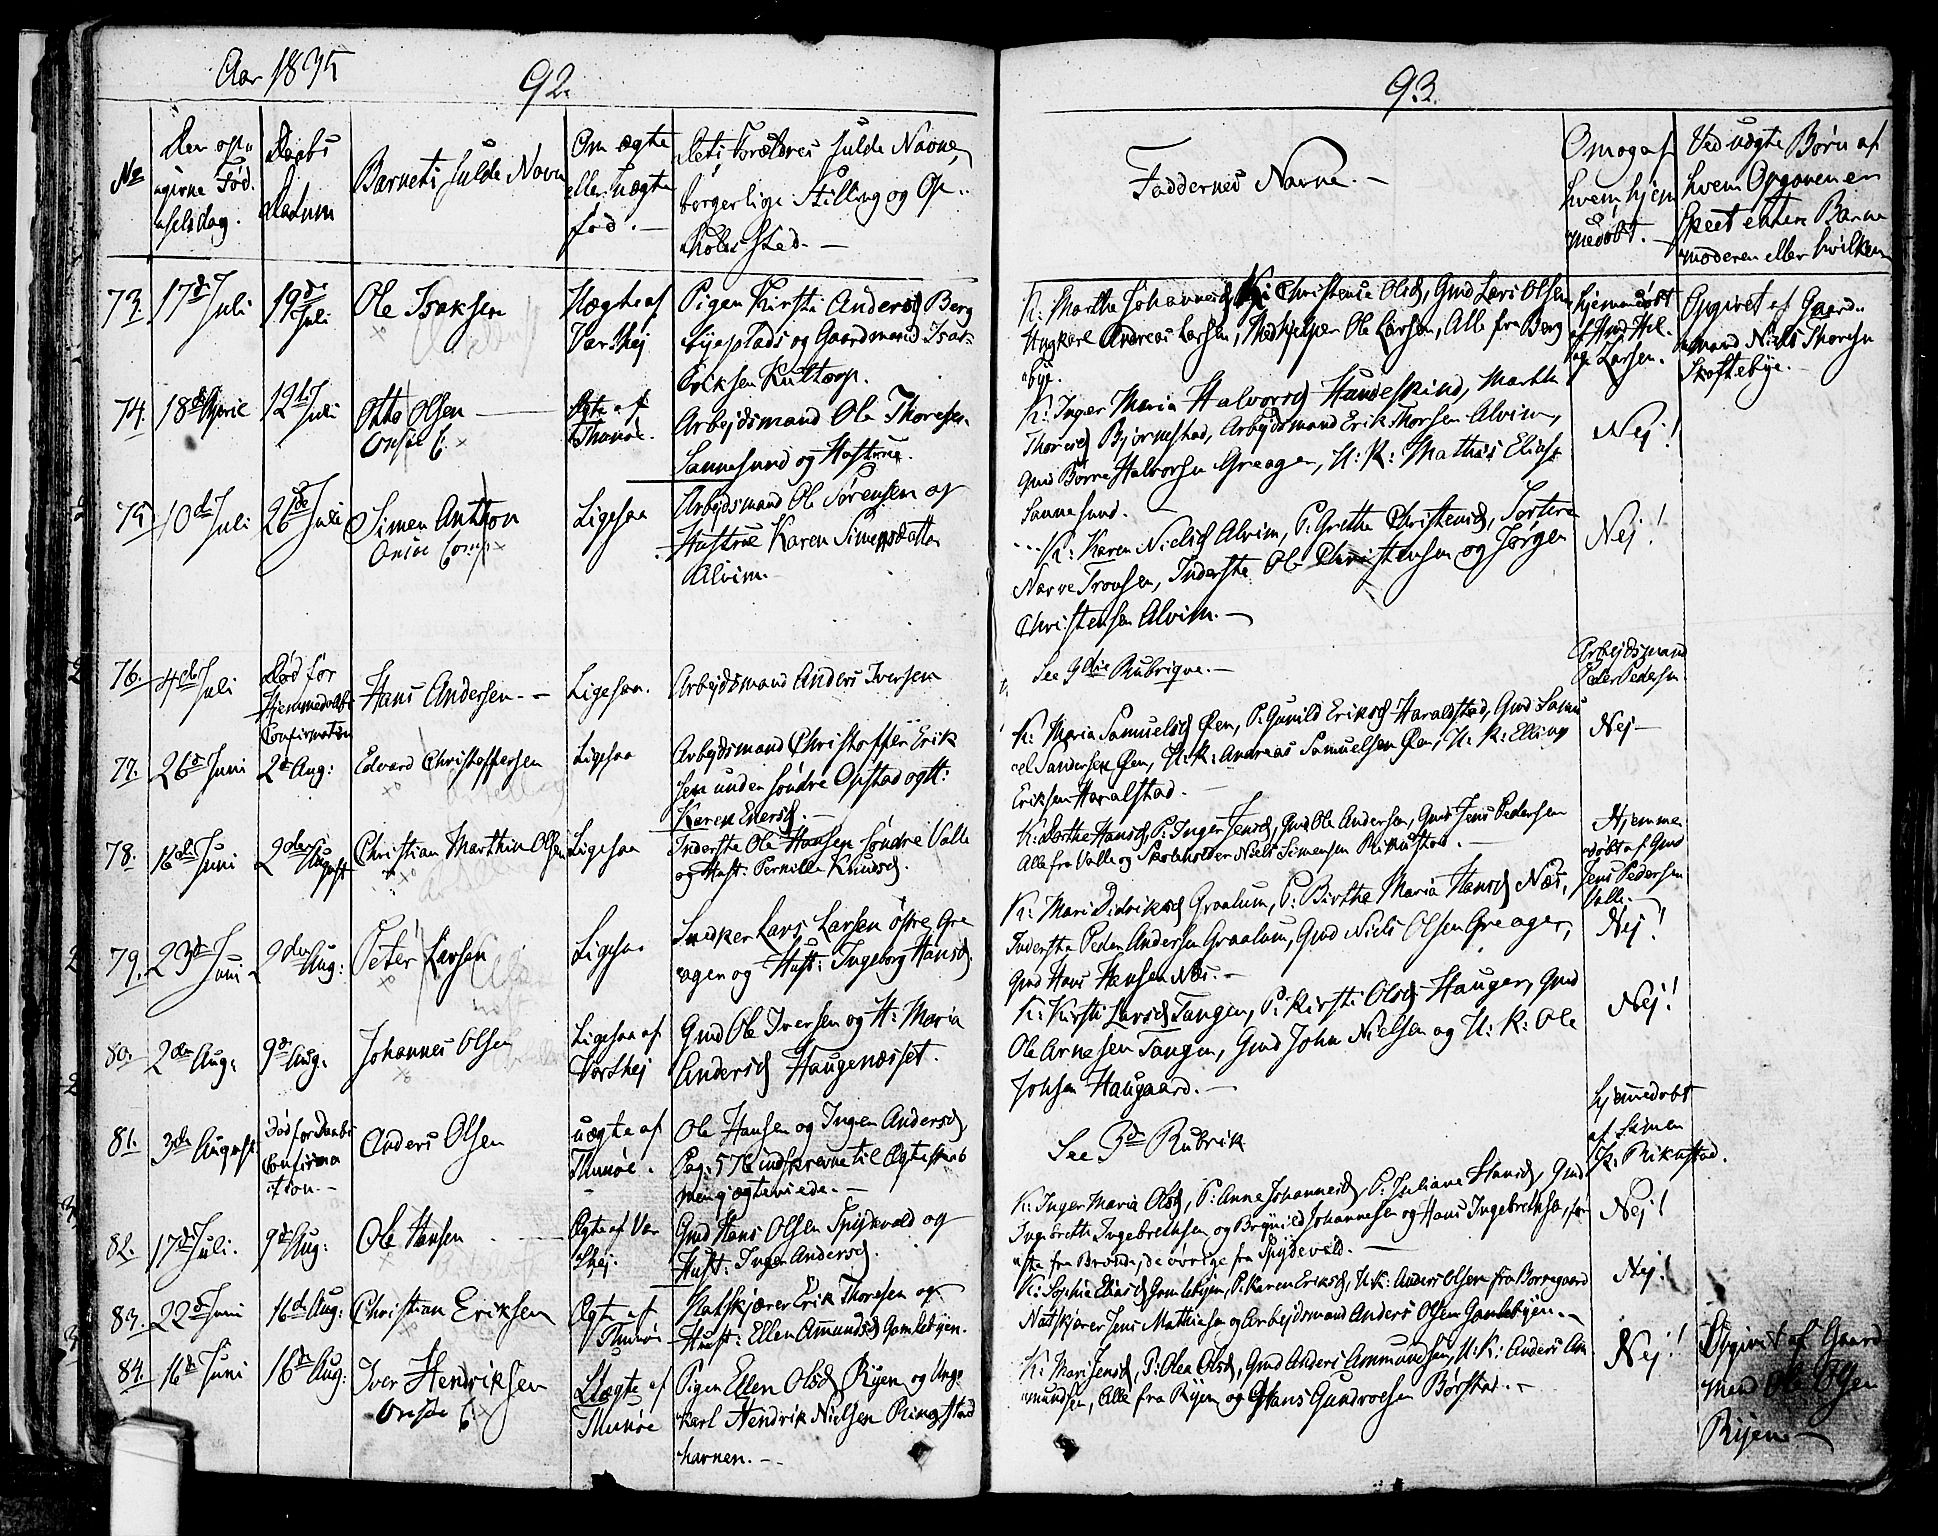 Aar 1835
92.
No
Den op-
givne Fød-
selsdag.
Daabs
Datum
Barnets fulde Navn
Om ægte
eller uægte
fød.
Dets Forældres fulde Navne,
borgerlige Stilling og Op-
holdssted.
73. 17de Juli
19de Juli
Ole Isaksen
Uægte af
Varthej
Pigen Kirsti Andersd Berg
bye, plads og Gaardmand Isak
Eriksen Kultorp.
74. 18de April
12te Juli
Otto Olsen
Ægte af
Thunøe.
Arbejdsmand Ole Thoresen
Sannesund og Hustrue.
75 10de Juli
26de Juli
Simen Anthon
Ligesaa
Arbejdsmand Ole Sørensen og
Hustrue Karen Simensdatter
Alvim.
76. 4de Juli
Død før
Hjemmedaabs
Confirmation
Hans Andersen.
Ligesaa.
Arbejdsmand Anders Iversen
77. 26de Juni
2de Aug:
Edvard Christoffersen
Ligesaa
Arbejdsmand Christoffer Erik
sen under søndre Opstad og H:
Karen Evensd.
78. 16de Juni
2den August
Christian Marthin Olsen
Ligesaa
Inderste Ole Hansen søndre Valle
og Hust: Pernille Knudsd.
79. 23de Juni
2den Aug:
Peter Larsen
Ligesaa
Snedker Lars Larsen østre Gre
aagen og Hust: Ingeborg Hansd.
80. 2den Aug:
9de Aug:
Johannes Olsen
Ligesaa af
Varthej
Gmd Ole Iversen og H: Maria
Andersd Haugenæsset.
81. 3die August
Død før Daabs
Confirma
tion.
Anders Olsen
uægte af
Thunøe.
Ole Hansen og Inger Andersd,
Pag: 576 indskrevne til Ægteskab
men ej ægteviede.
82. 17de Juli.
9de Aug:
Ole Hansen
Ægte af Var
thej.
Gmd Hans Olsen Spydevold og
Hust: Inger Andersd.
83. 22de Juni
16de Aug:
Christian Eriksen
Ægte af
Thunøe
Natskjører Erik Thoresen og
Hust: Ellen Amundsd Gamlebyen.
84. 16de Juni
16de Aug:
Iver Hendriksen
Uægte af
Thunøe
Pigen Ellen Olsd Ryen og Ung-
karl Hendrik Nielsen Ringstad
havnen.
93.
Faddernes Navne.
Om og af
hvem hjem
medøbt.
Ved uægte Børn af
hvem Opgaven er
skeet enten Barne
moderen eller hvilken
K: Marthe Johannesd, Christense Olsd, Gmd Lars Olsen
Ungkarl Andreas Larsen, Medhjelper Ole Larsen, Alle fra Berg
bye.
hjemmedøbt
Larsen.
Opgivet af Gaard-
mand Niels Thoresen
Skoftebye.
K: Inger Maria Halvorsd Hundeskind, Marthe
Thoresd Bjørnstad, Arbejdsmand Erik Thorsen Alvim,
Gmd Børre Halvorsen Greager, U: K: Mathis Elias
Sannesund.
Nej!
K: Karen Nielsd Alvim, P: Grethe Christensd,
Narve Tronsen, Inderste Ole Christensen og Jørgen
Christensen Alvim.
Nej!
See 9die Rubrique.
Arbejdsmand
Peder Pedersen.
K: Maria Samuelsd Øen, P: Gunild Eriksd Haralstad, Gmd Samu
el Sandersen Øen, U: K: Andreas Samuelsen Øen, U: K: Elling
Eriksen Haralstad.
Nej
K: Dorthe Hansd, P: Inger Jensd, Gmd Ole Andersen, Gmd Jens Pedersen
Alle fra Valle og Skoleholder Niels Simensen Rikustad.
Hjemme
døbt af Gmd
Jens Pedersen
Valle.
K: Mari Didriksd Graalum, P: Birthe Maria Hansd Næs,
Inderste Peder Andersen Graalum, Gmd Niels Olsen Greager,
Gmd Hans Hansen Næs.
Nej!
K: Kirsti Larsd Tangen, P: Kirsti Olsd Hauger, Gmd
Ole Arnesen Tangen, Gmd John Nielsen og U: K: Ole
Johsen Haugaard.
Nej!
See 3de Rubrik
hjemmedøbt
af Simen
Rikustad.
K: Inger Maria Olsd, P: Anne Johannesd, P: Juliane Hansd, Gmd
Ingebreth Ingebrethsen og Brynild Johannesen og Hans Ingebrethsen, før
ste fra Brevik, de øvrige fra Spydevold.
Nej!
K: Sophie Eliasd Gamlebyen, P: Karen Eriksd, U: K: Anders Olsen fra Borregaard
Natskjører Jens Mathiesen og Arbejdsmand Anders Olsen Gamlebyen.
Nej!
K: Mari Jensd, P: Olea Olsd, Gmd Anders Ammundsen, U: K: Anders Am
mundsen, Alle fra Ryen og Hans Gundersen Børstad.
Nej!
Opgivet af Gaard
mand Ole Olsen
Ryen.